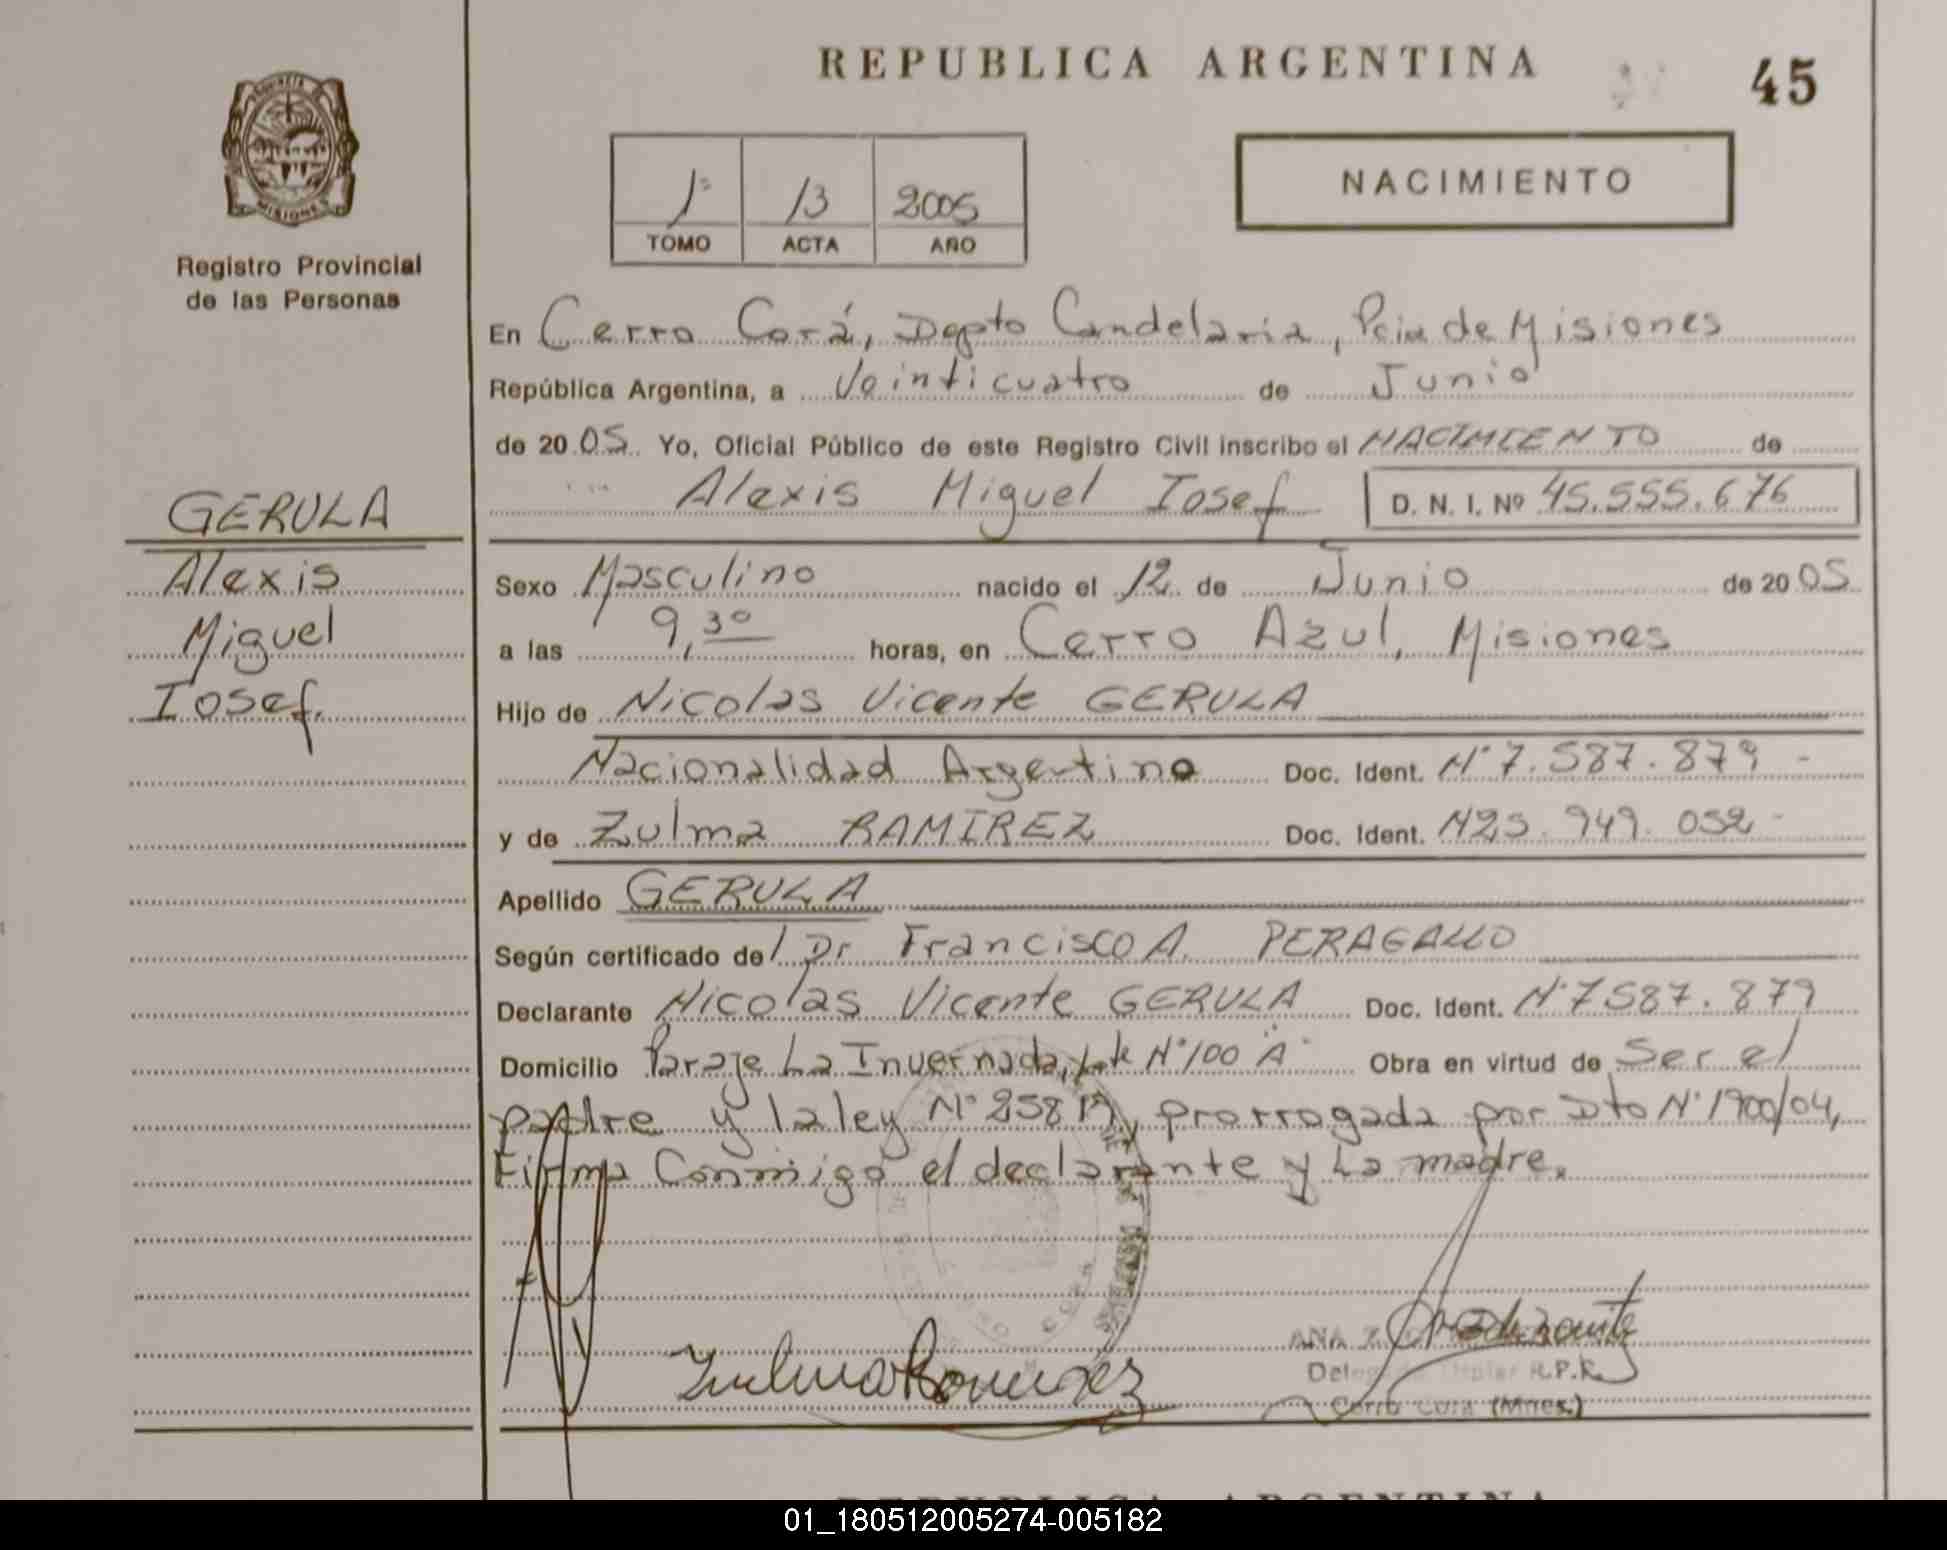 REPUBLICA ARGENTINA
45
PROVINCIA
MISIONES
Registro Provincial
de las Personas
1º 13 2005
TOMO ACTA AÑO
NACIMIENTO
En Cerro Corá, Depto Candelaria, Pcia de Misiones
República Argentina, a Veinticuatro de Junio
de 20 05 Yo, Oficial Público de este Registro Civil inscribo el NACIMIENTO de
Alexis Miguel Iosef D. N. I. Nº 45.555.676
GERULA
Alexis
Miguel
Iosef.
Sexo Masculino nacido el 12 de Junio de 20 05
a las 9,30 horas, en Cerro Azul, Misiones
Hijo de Nicolas Vicente GERULA
Nacionalidad Argentina Doc. Ident. Nº 7.587.879 -
y de Zulma RAMIREZ Doc. Ident. N 23.949.052 -
Apellido GERULA
Según certificado del Dr Francisco A. PERAGALLO
Declarante Nicolas Vicente GERULA Doc. Ident. Nº 7587.879
Domicilio Paraje La Invernada, Lote Nº 100 "A" Obra en virtud de Ser el
padre y la ley Nº 25819, prorrogada por Dto Nº 1900/04,
Firma Conmigo el declarante y La madre.
Zulma Ramirez
ANA
Titular R.P.R.
Cerro Corá (Mnes.)
REPUBLICA ARGENTINA
01_180512005274-005182